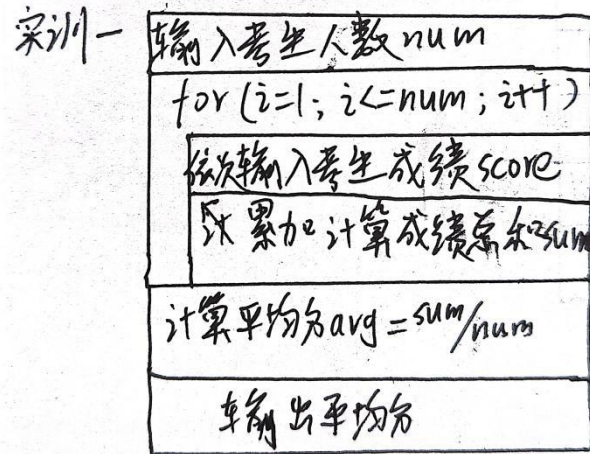 实训一
输入考生人数num
for(i=1; i<=num; i++)
依次输入考生成绩score
累加计算成绩总和sum
计算平均分avg=sum/num
输出平均分